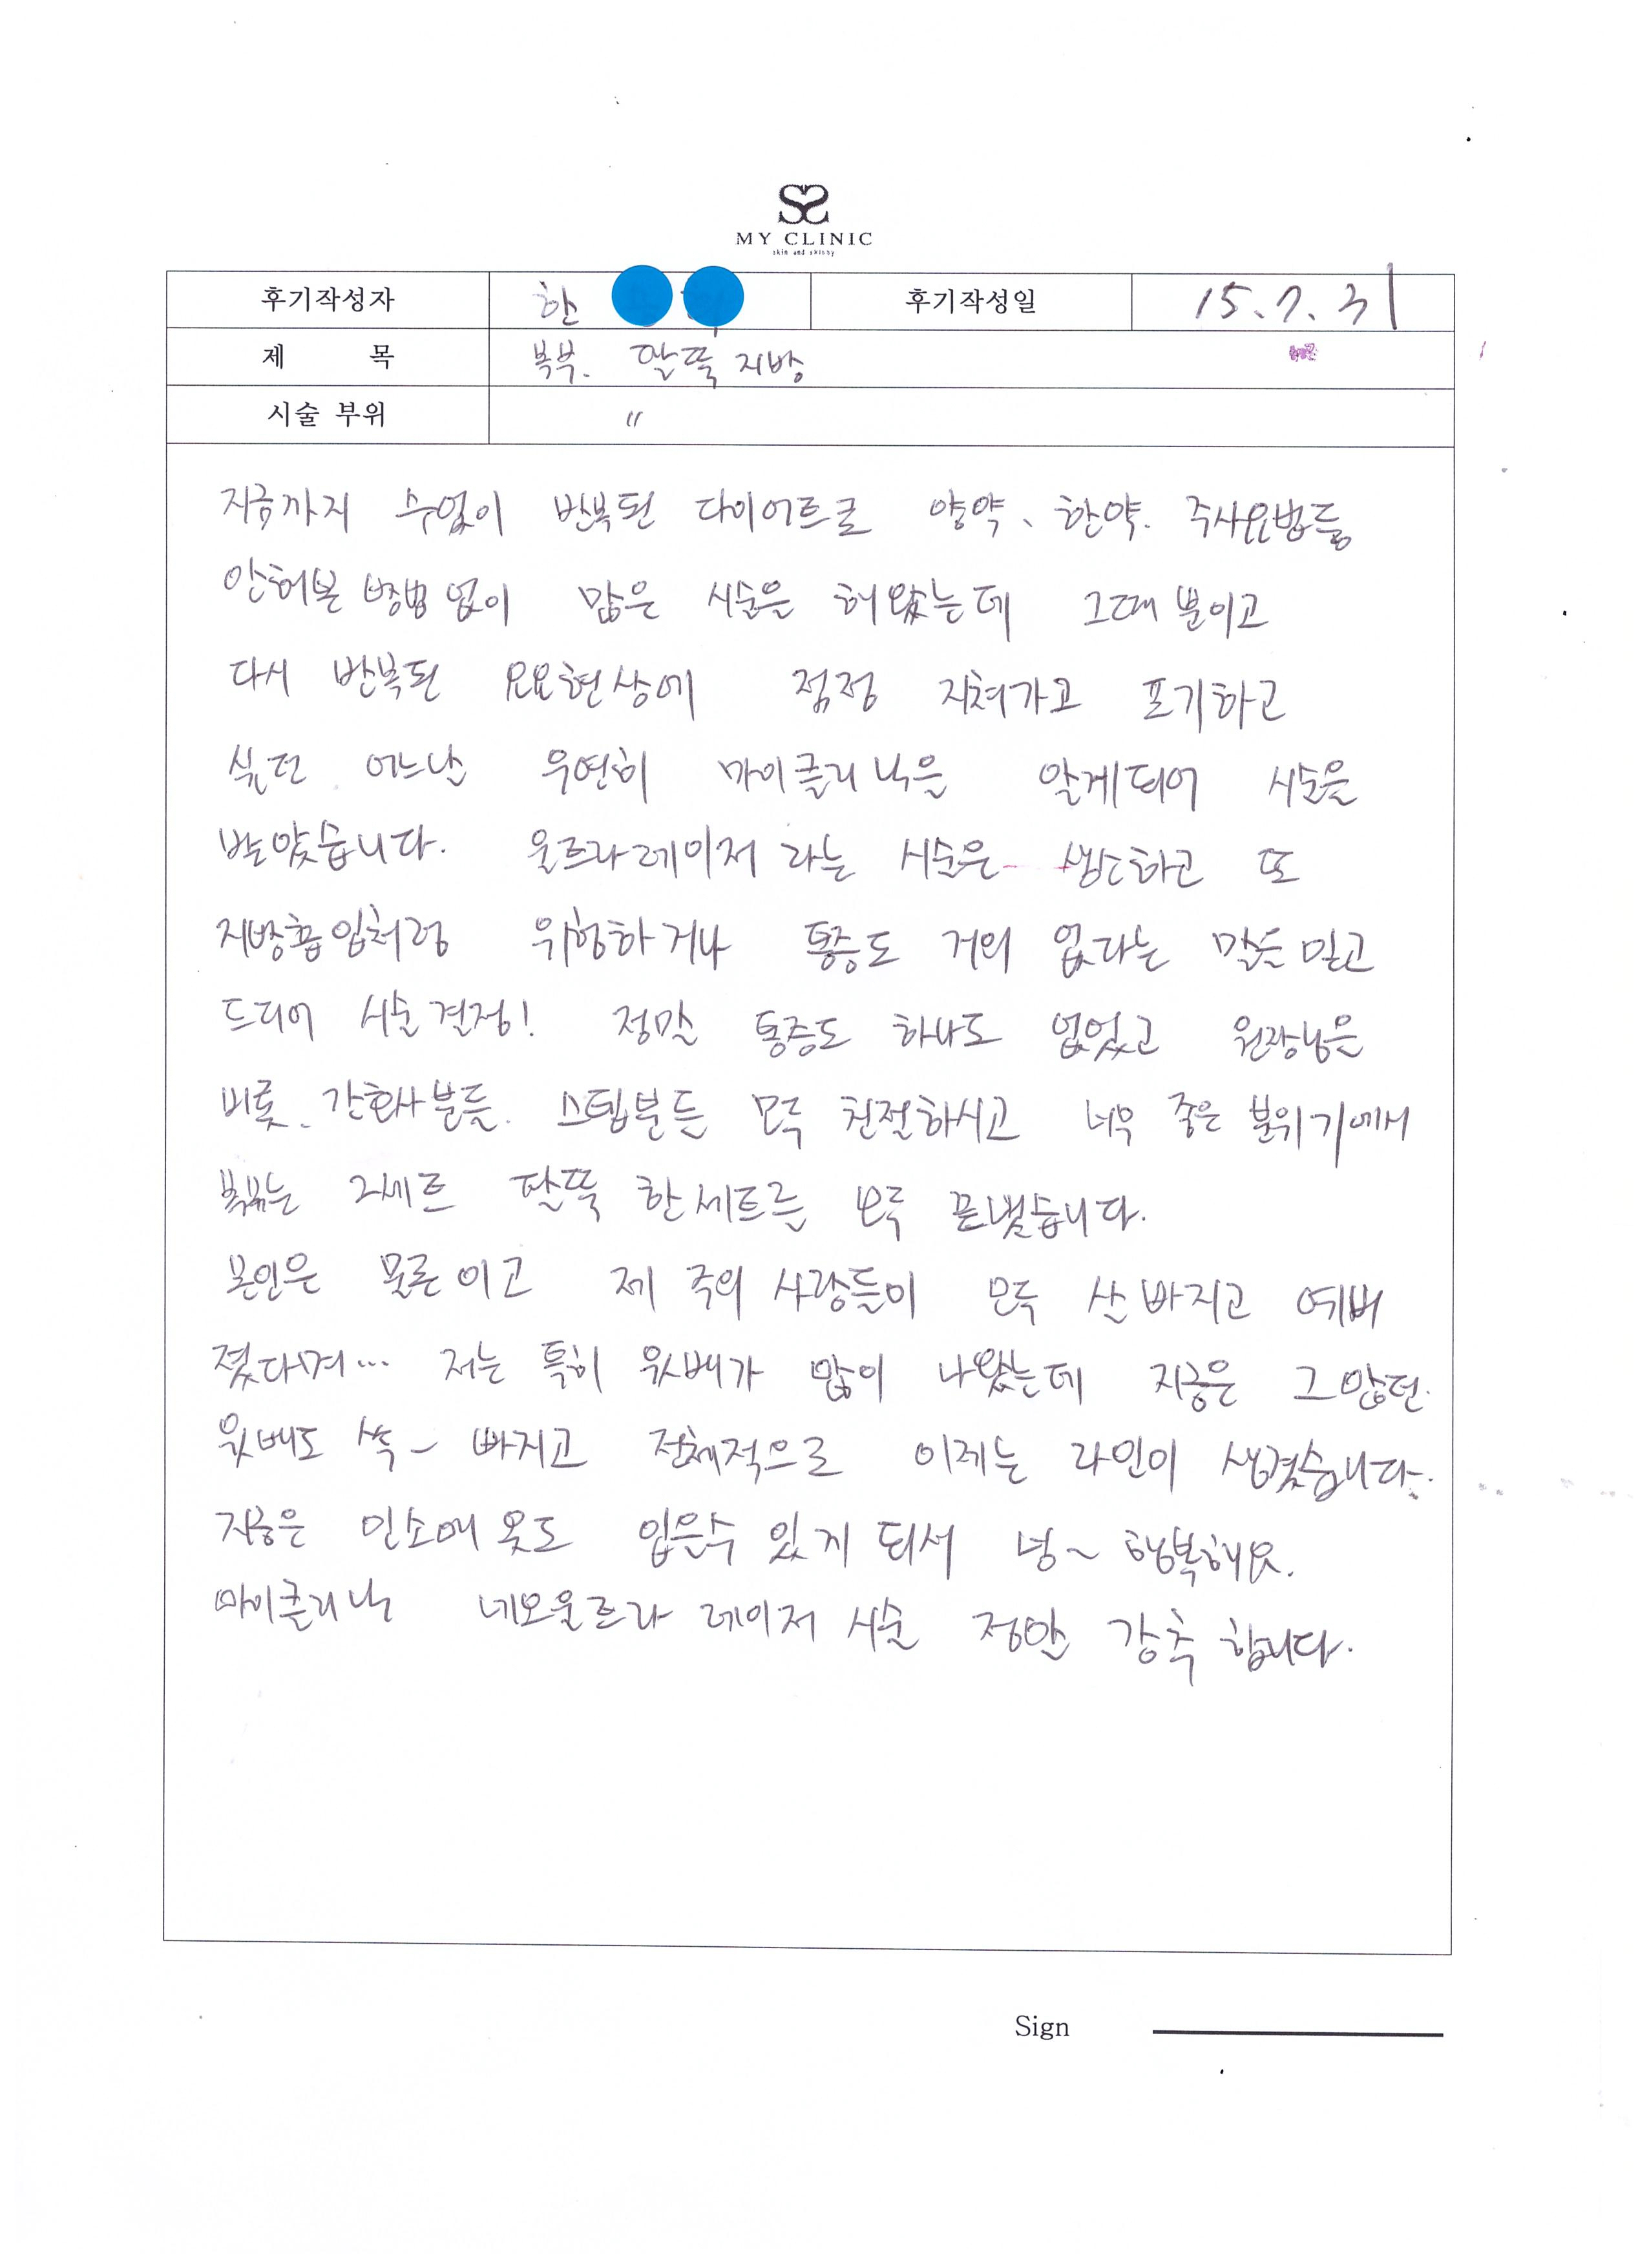 MY CLINIC
skin and skinny
후기작성자 한 후기작성일 15.7.31
제 목 복부. 팔뚝 지방
시술 부위 〃
지금까지 수없이 반복된 다이어트로 양약、한약. 주사요법등
안해본 방법 없이 많은 시술을 해 왔는데 그때 뿐이고
다시 반복된 요요현상에 점점 지쳐가고 포기하고
싶던 어느날 우연히 마이클리닉을 알게되어 시술을
받았습니다. 울트라레이저 라는 시술은 생소하고 또
지방흡입처럼 위험하거나 통증도 거의 없다는 말을 믿고
드디어 시술 결정! 정말 통증도 하나도 없었고 원장님은
비롯. 간호사분들. 스텝분들 모두 친절하시고 너무 좋은 분위기에서
복부는 2세트 팔뚝 한세트를 모두 끝냈습니다.
본인은 물론이고 제 주위 사람들이 모두 살 빠지고 예뻐
졌다며... 저는 특히 윗배가 많이 나왔는데 지금은 그 많던
윗배도 쏙~ 빠지고 전체적으로 이제는 라인이 생겼습니다.
지금은 민소매 옷도 입을수 있게 되서 넘~ 행복해요.
마이클리닉 네오울트라 레이저 시술 정말 강추 합니다.
Sign